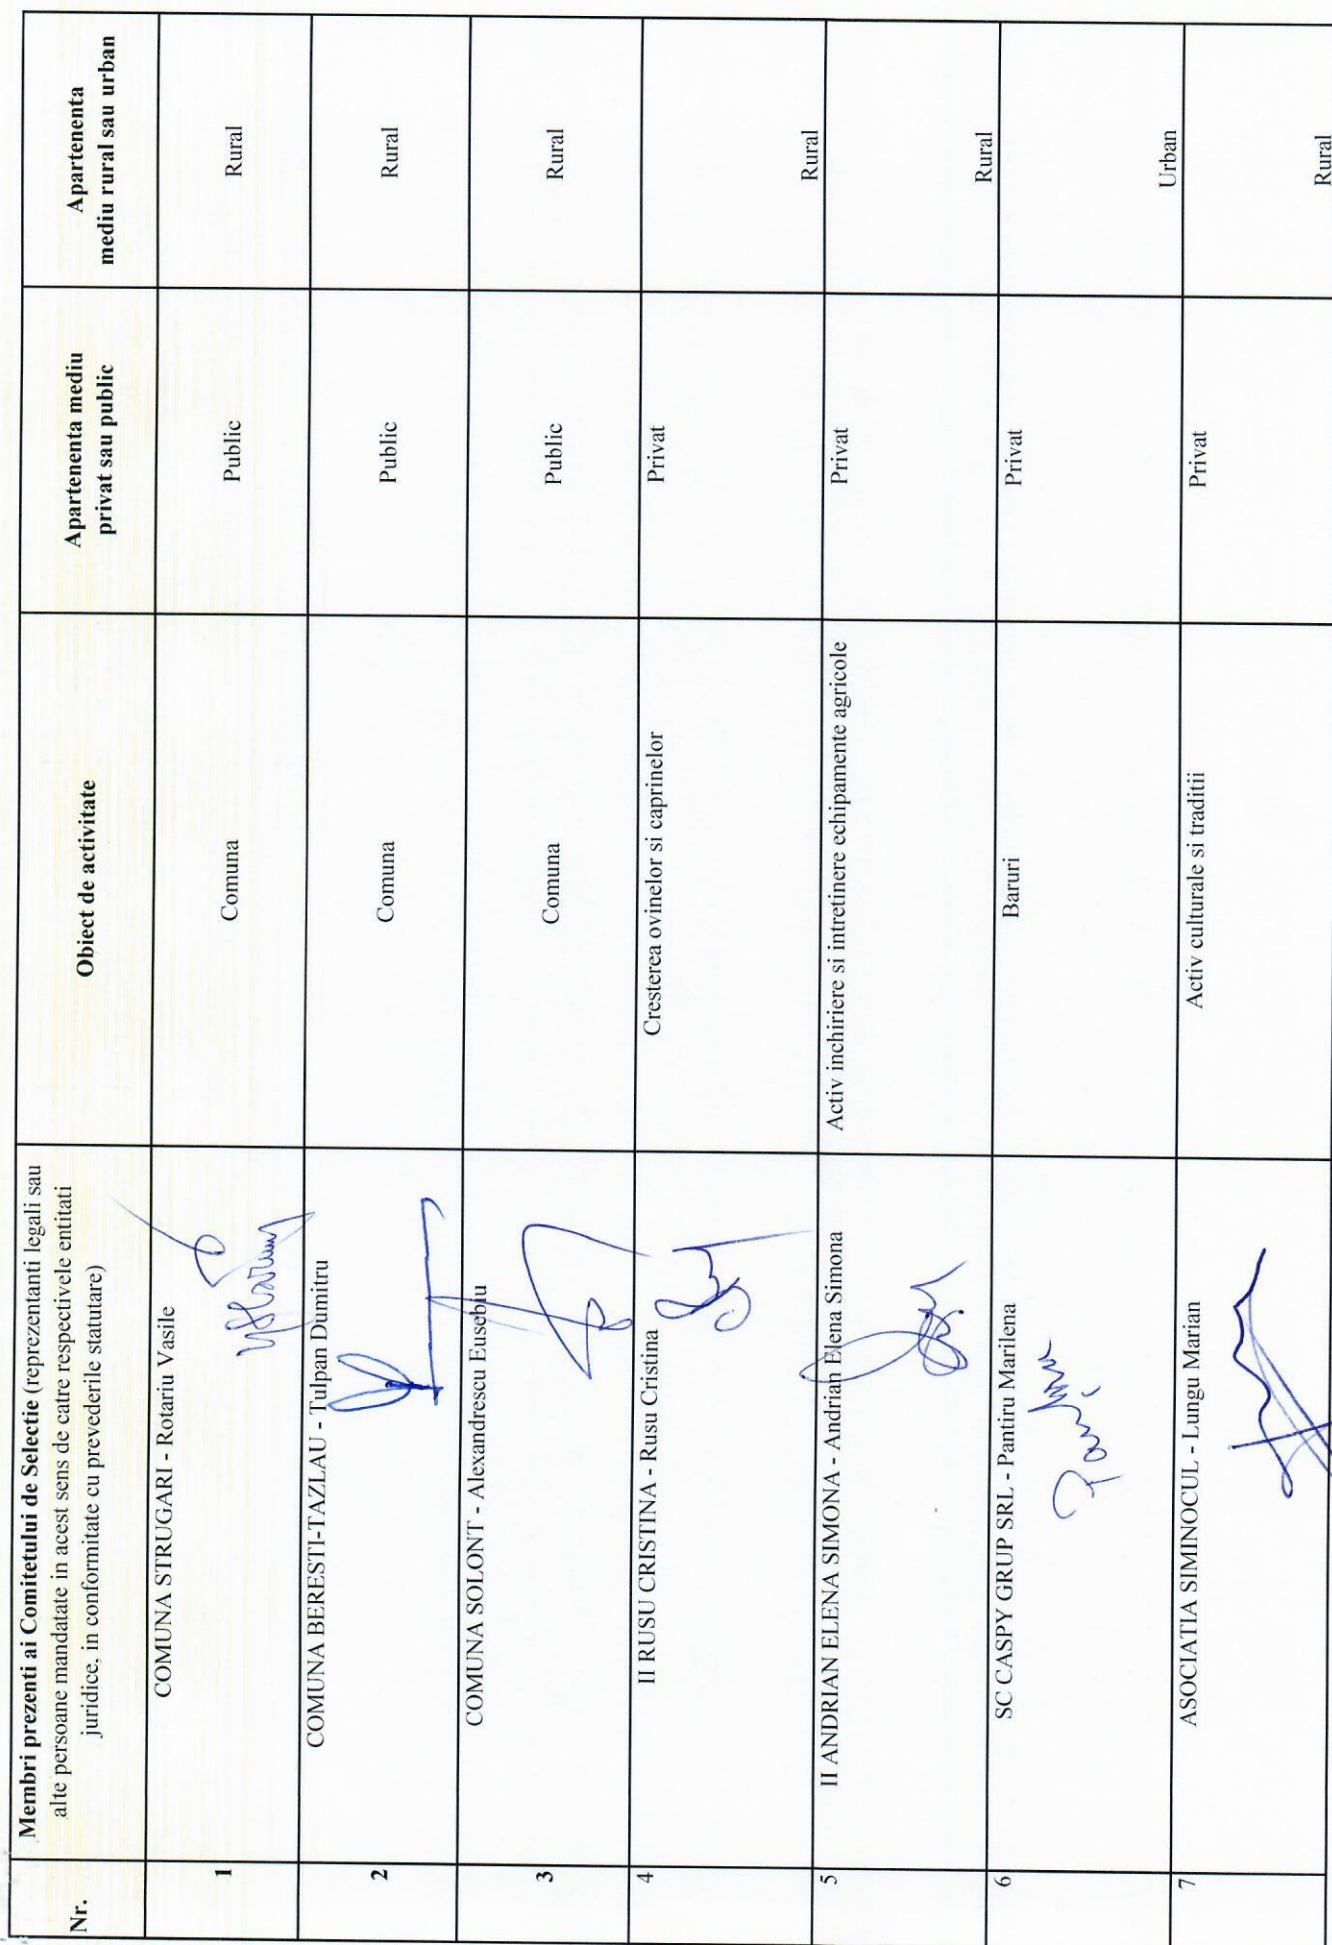 Nr.
Membri prezenti ai Comitetului de Selectie (reprezentanti legali sau
alte persoane mandatate in acest sens de catre respectivele entitati
juridice, in conformitate cu prevederile statutare)
Obiect de activitate
Apartenenta mediu
privat sau public
Apartenenta
mediu rural sau urban
1
COMUNA STRUGARI - Rotariu Vasile
Comuna
Public
Rural
2
COMUNA BERESTI-TAZLAU - Tulpan Dumitru
Comuna
Public
Rural
3
COMUNA SOLONT - Alexandrescu Eusebiu
Comuna
Public
Rural
4
II RUSU CRISTINA - Rusu Cristina
Cresterea ovinelor si caprinelor
Privat
Rural
5
II ANDRIAN ELENA SIMONA - Andrian Elena Simona
Activ inchiriere si intretinere echipamente agricole
Privat
Rural
6
SC CASPY GRUP SRL - Pantiru Marilena
Baruri
Privat
Urban
7
ASOCIATIA SIMINOCUL - Lungu Marian
Activ culturale si traditii
Privat
Rural